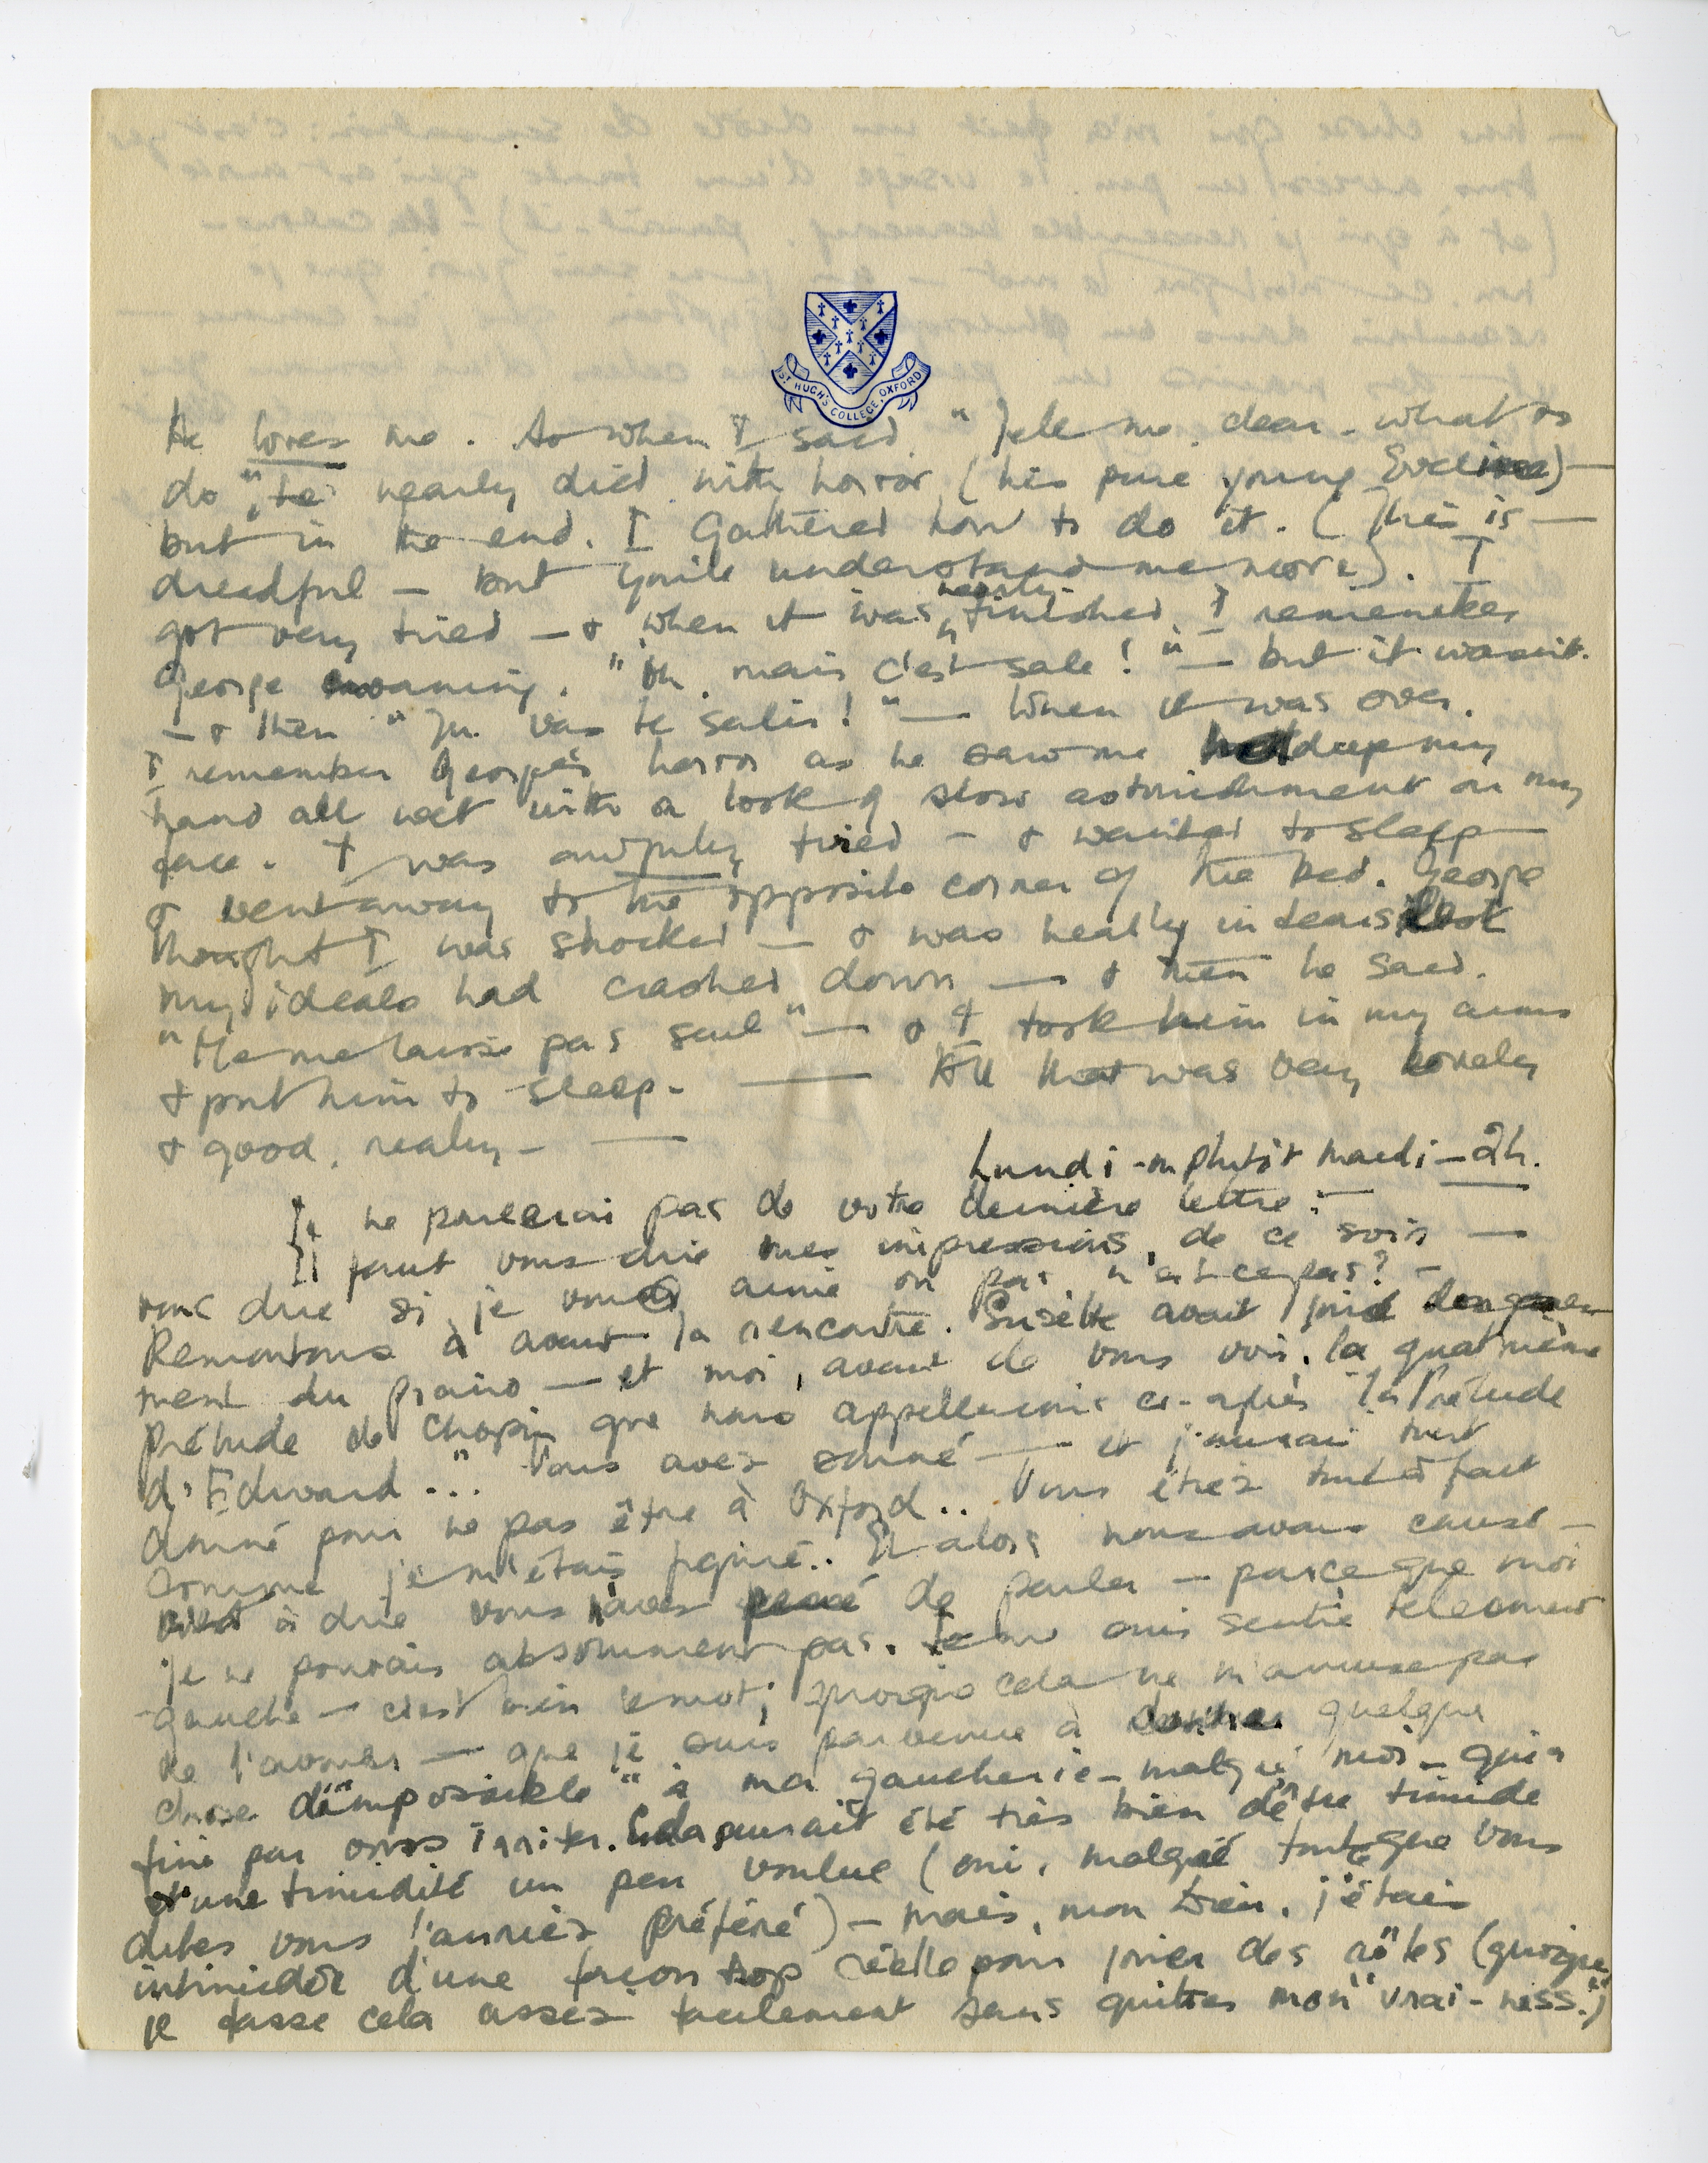 ST HUGH'S COLLEGE, OXFORD
He loves me. So when I said "Tell me, dear - what to
do", he nearly died with horror (his pure young Eveline) —
but in the end, I gathered how to do it. (This is —
dreadful — but you'll understand me more). I
got very tired — & when it was nearly finished, I remember
George moaning, "Oh, mais c'est sale!" — but it wasn't.
— & then "Tu vas te salir!" — When it was over,
I remember George's horror as he saw me deep my
hand all wet with a look of slow astonishment on my
face. I was awfully tired — & wanted to sleep
& went away to the opposite corner of the bed. George
thought I was shocked — & was really in tears
my ideals had crashed down — & then he said,
"Ne me laisse pas seul" — & I took him in my arms
& put him to sleep. — All that was very lovely
& good, really — —
Lundi - ou plutôt mardi — 2h.
Je ne parlerai pas de votre dernière lettre : —
Il faut vous dire mes impressions, de ce soir —
vous dire si je vous aime ou pas, n'est-ce pas? —
Remontons à avant la rencontre. Suzette avait joué
ment du piano — et moi, avant de vous voir, la quatrième
Prélude de Chopin que nous appellerons ci-après "la Prélude
d'Edward..." Vous avez sonné — et j'aurai tout
donné pour ne pas être à Oxford.. Vous étiez tout à fait
comme je m'étais figuré.. Et alors nous avons causé —
c'est à dire vous avez de parler — parce que moi
je ne pouvais absolument pas. Je me suis sentie tellement
gauche — c'est bien le mot; quoique cela ne m'amuse pas
de l'avouer — que je suis parvenue à donner quelque
chose d'"impossible" à ma gaucherie — malgré moi — qui a
fini par vous irriter. Cela aurait été très bien d'être timide
d'une timidité un peu voulue (oui, malgré tout ce que vous
dites vous l'auriez préféré) — mais, mon Dieu, j'étais
intimidée d'une façon trop réelle pour jouer des rôles (quoique
je fasse cela assez facilement sans quitter mon "vrai-ness".)